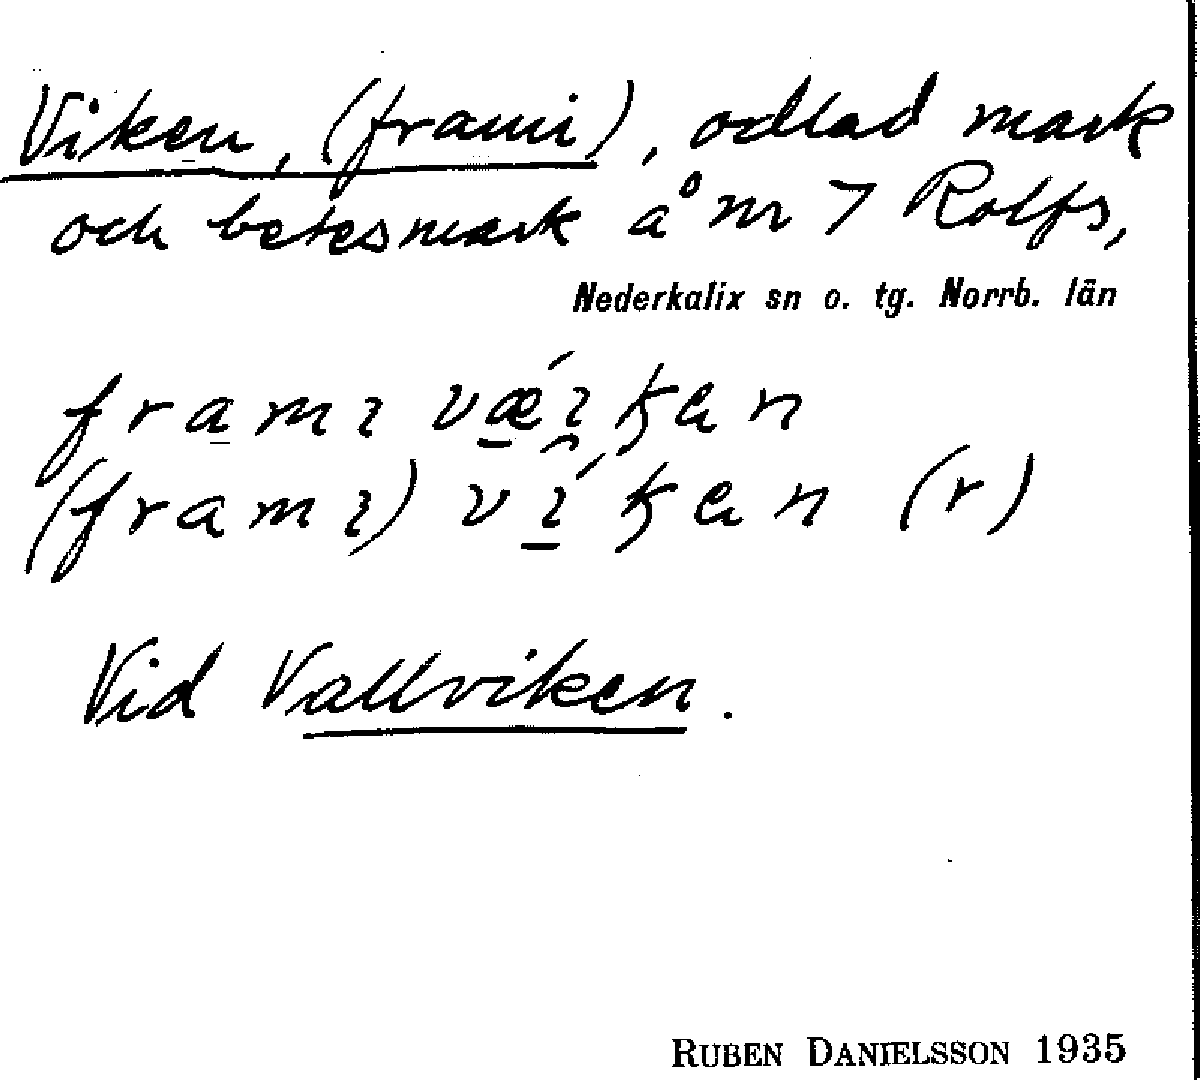 Viken, (frami), odlad mark
och betesmark å nr 7 Rolfs,
Nederkalix sn o. tg. Norrb. län
frami vǽiken
(frami) víken (r)
Vid Vallviken.
RUBEN DANIELSSON 1935